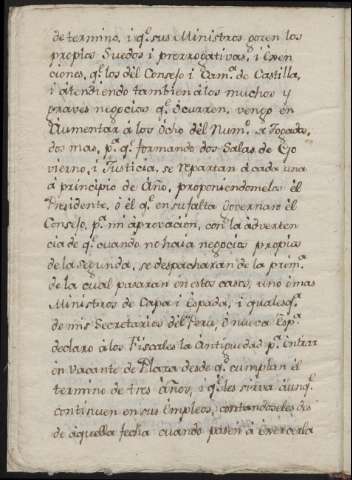 de termino, i q.e sus Ministros gozen los
propios Sueldos i prerrogativas, i Exen
ciones, q.e los del Consejo i Cam.a de Castilla,
i atendiendo tambien à los muchos y
graves negocios q.e ocurren, vengo en
Aumentar à los Ocho del Num.o, Togados,
dos mas, p.a q.e formando dos Salas de Go
vierno, i Justicia, se repartan à cada una
à principio de Año, proponiendomelos el
Presidente, ò él q.e en su falta Governare el
Consejo, p.a mi aprovacion, con la adverten
cia de q.e quando no haya negocios propios
de la segunda, se despacharàn de la prim.a
de la qual pasaràn en estos casos, uno ò mas
Ministros de Capa i Espada, i qualesq.a
de mis Secretarios del Peru, ò nueca Esp.a
declaro à los Fiscales la Antiguedad p.a Entrar
en Vacante de Plaza desde q.e cumplan el
termino de tres años, i q.e les sirva aunq.e
continuen en sus Empleos, contandoseles des
de aquella fecha quando pasen à exercerla